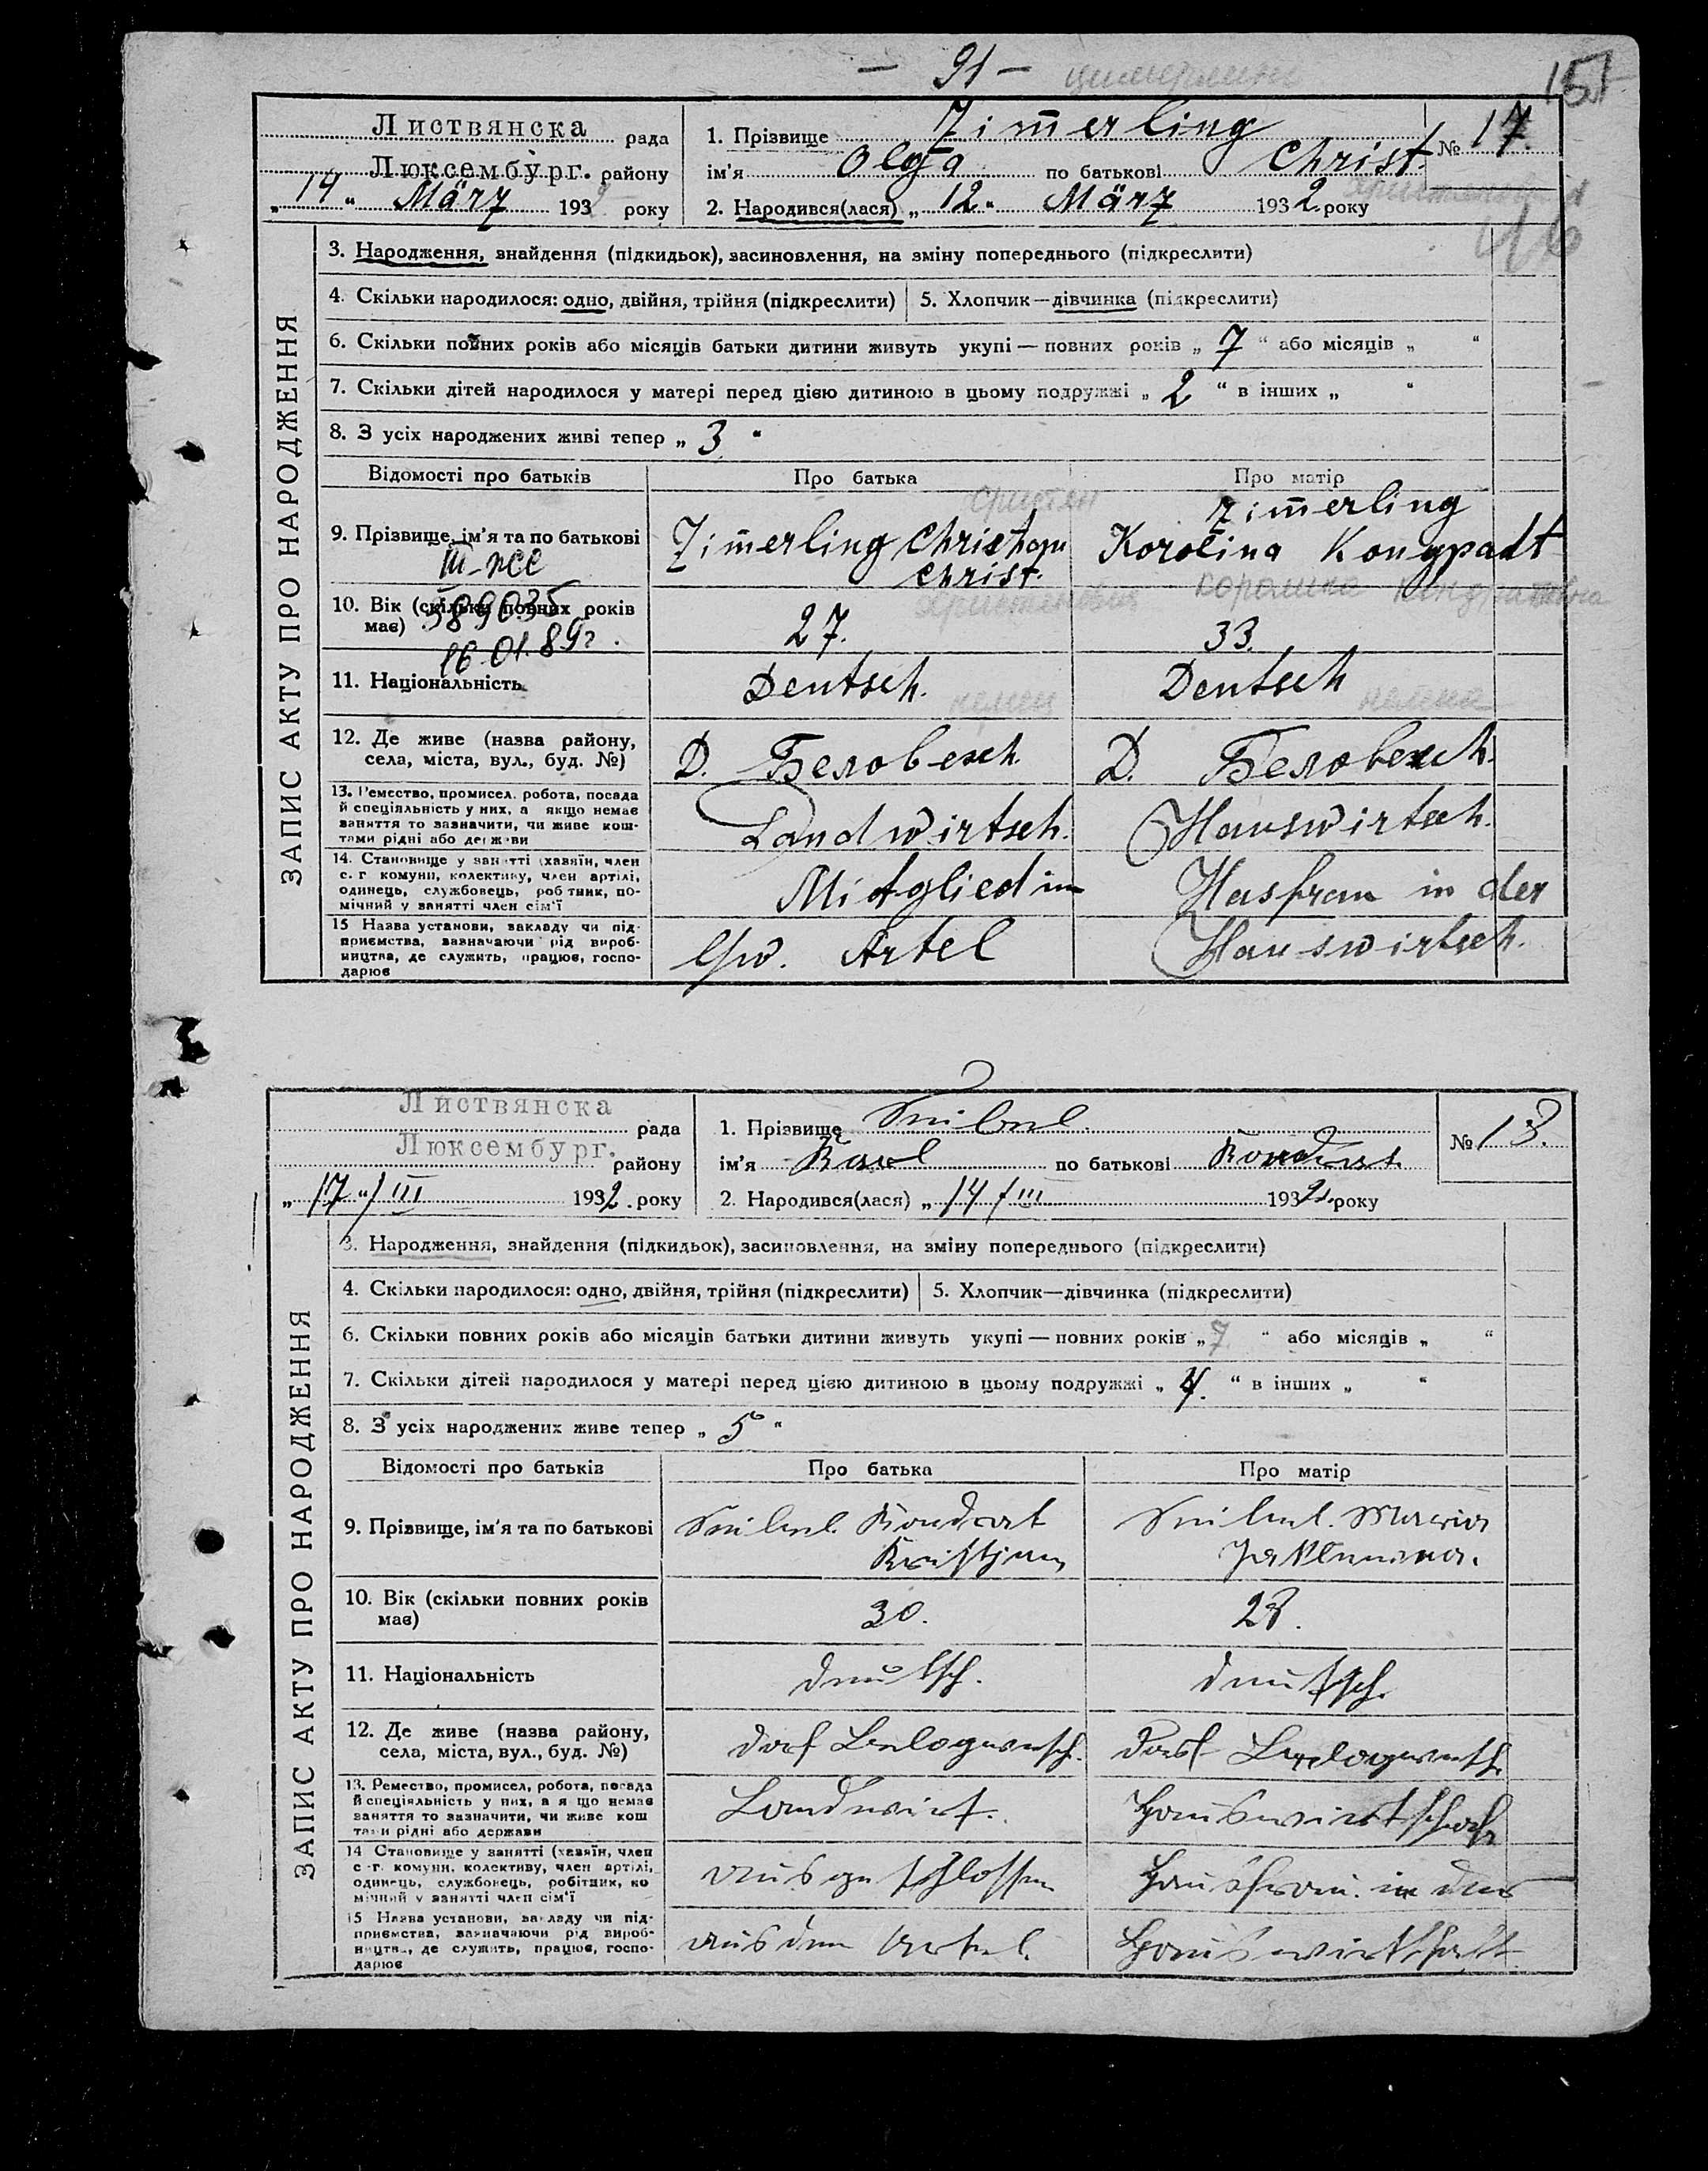 — 91 —
151
Листвянска рада
Люксембург. району
„ 14 “ März 193 року
1. Прізвище Zim̅erling
ім'я Olga по батькові Christ.
№ 17.
2. Народився(лася) „ 12 “ März 1932 року
46
ЗАПИС АКТУ ПРО НАРОДЖЕННЯ
3. Народження, знайдення (підкидьок), засиновлення, на зміну попереднього (підкреслити)
4. Скільки народилося: одно, двійня, трійня (підкреслити)
5. Хлопчик—дівчинка (підкреслити)
6. Скільки повних років або місяців батьки дитини живуть укупі — повних років „ 7 “ або місяців „ “
7. Скільки дітей народилося у матері перед цією дитиною в цьому подружжі „ 2 “ в інших „ “
8. З усіх народжених живі тепер „ 3 “
Відомості про батьків
Про батька
Про матір
9. Прізвище, ім'я та по батькові
Zim̅erling
Christ.
Zim̅erling
Korolina
каролина
III-ЖС
589035
16.01.89г.
10. Вік (скільки повних років має)
27.
33.
11. Національність
Deutsch.
Deutsch
немец
немка
12. Де живе (назва району, села, міста, вул., буд. №)
D. Беловеsch.
D. Беловеsch.
13. Ремество, промисел, робота, посада
й спеціяльність у них, а якщо немає
заняття то зазначити, чи живе кош-
тами рідні або держави
Landwirtsch.
Hauswirtsch.
14. Становище у занятті (хазяїн, член
с. г комуни, колективу, член артілі,
одинець, службовець, робітник, по-
мічний у занятті член сім'ї
Mitglied im
Hasfrau in der
15 Назва установи, закладу чи під-
приємства, зазначаючи рід вироб-
ництва, де служить, працює, госпо-
дарює
Artel
Hauswirtsch.
Листвянска рада
Люксембург. району
„ 17 “ / III 1932. року
1. Прізвище
ім'я Karl по батькові Kondrat.
№ 18.
2. Народився(лася) „ 14 / III 1932 року
ЗАПИС АКТУ ПРО НАРОДЖЕННЯ
3. Народження, знайдення (підкидьок), засиновлення, на зміну попереднього (підкреслити)
4. Скільки народилося: одно, двійня, трійня (підкреслити)
5. Хлопчик—дівчинка (підкреслити)
6. Скільки повних років або місяців батьки дитини живуть укупі — повних років „ 7 “ або місяців „ “
7. Скільки дітей народилося у матері перед цією дитиною в цьому подружжі „ 4. “ в інших „ “
8. З усіх народжених живе тепер „ 5 “
Відомості про батьків
Про батька
Про матір
9. Прізвище, ім'я та по батькові
Kondrat
Kristjan
Maria
10. Вік (скільки повних років має)
30.
28.
11. Національність
deutsch.
deutsch.
12. Де живе (назва району, села, міста, вул., буд. №)
dorf
dorf
13. Ремество, промисел, робота, посада
й спеціяльність у них, а якщо немає
заняття то зазначити, чи живе кош
тами рідні або держави
Landwirt.
Hauswirtschaft
14 Становище у занятті (хазяїн, член
с -г. комуни, колективу, член артілі,
одинець, службовець, робітник, по
мічний у занятті член сім'ї
ausgeschlossen
Hausfrau. in der
15 Назва установи, закладу чи під-
приємства, зазначаючи рід вироб-
ництва, де служить, працює, госпо-
дарює
aus dem Artel.
Hauswirtschaft